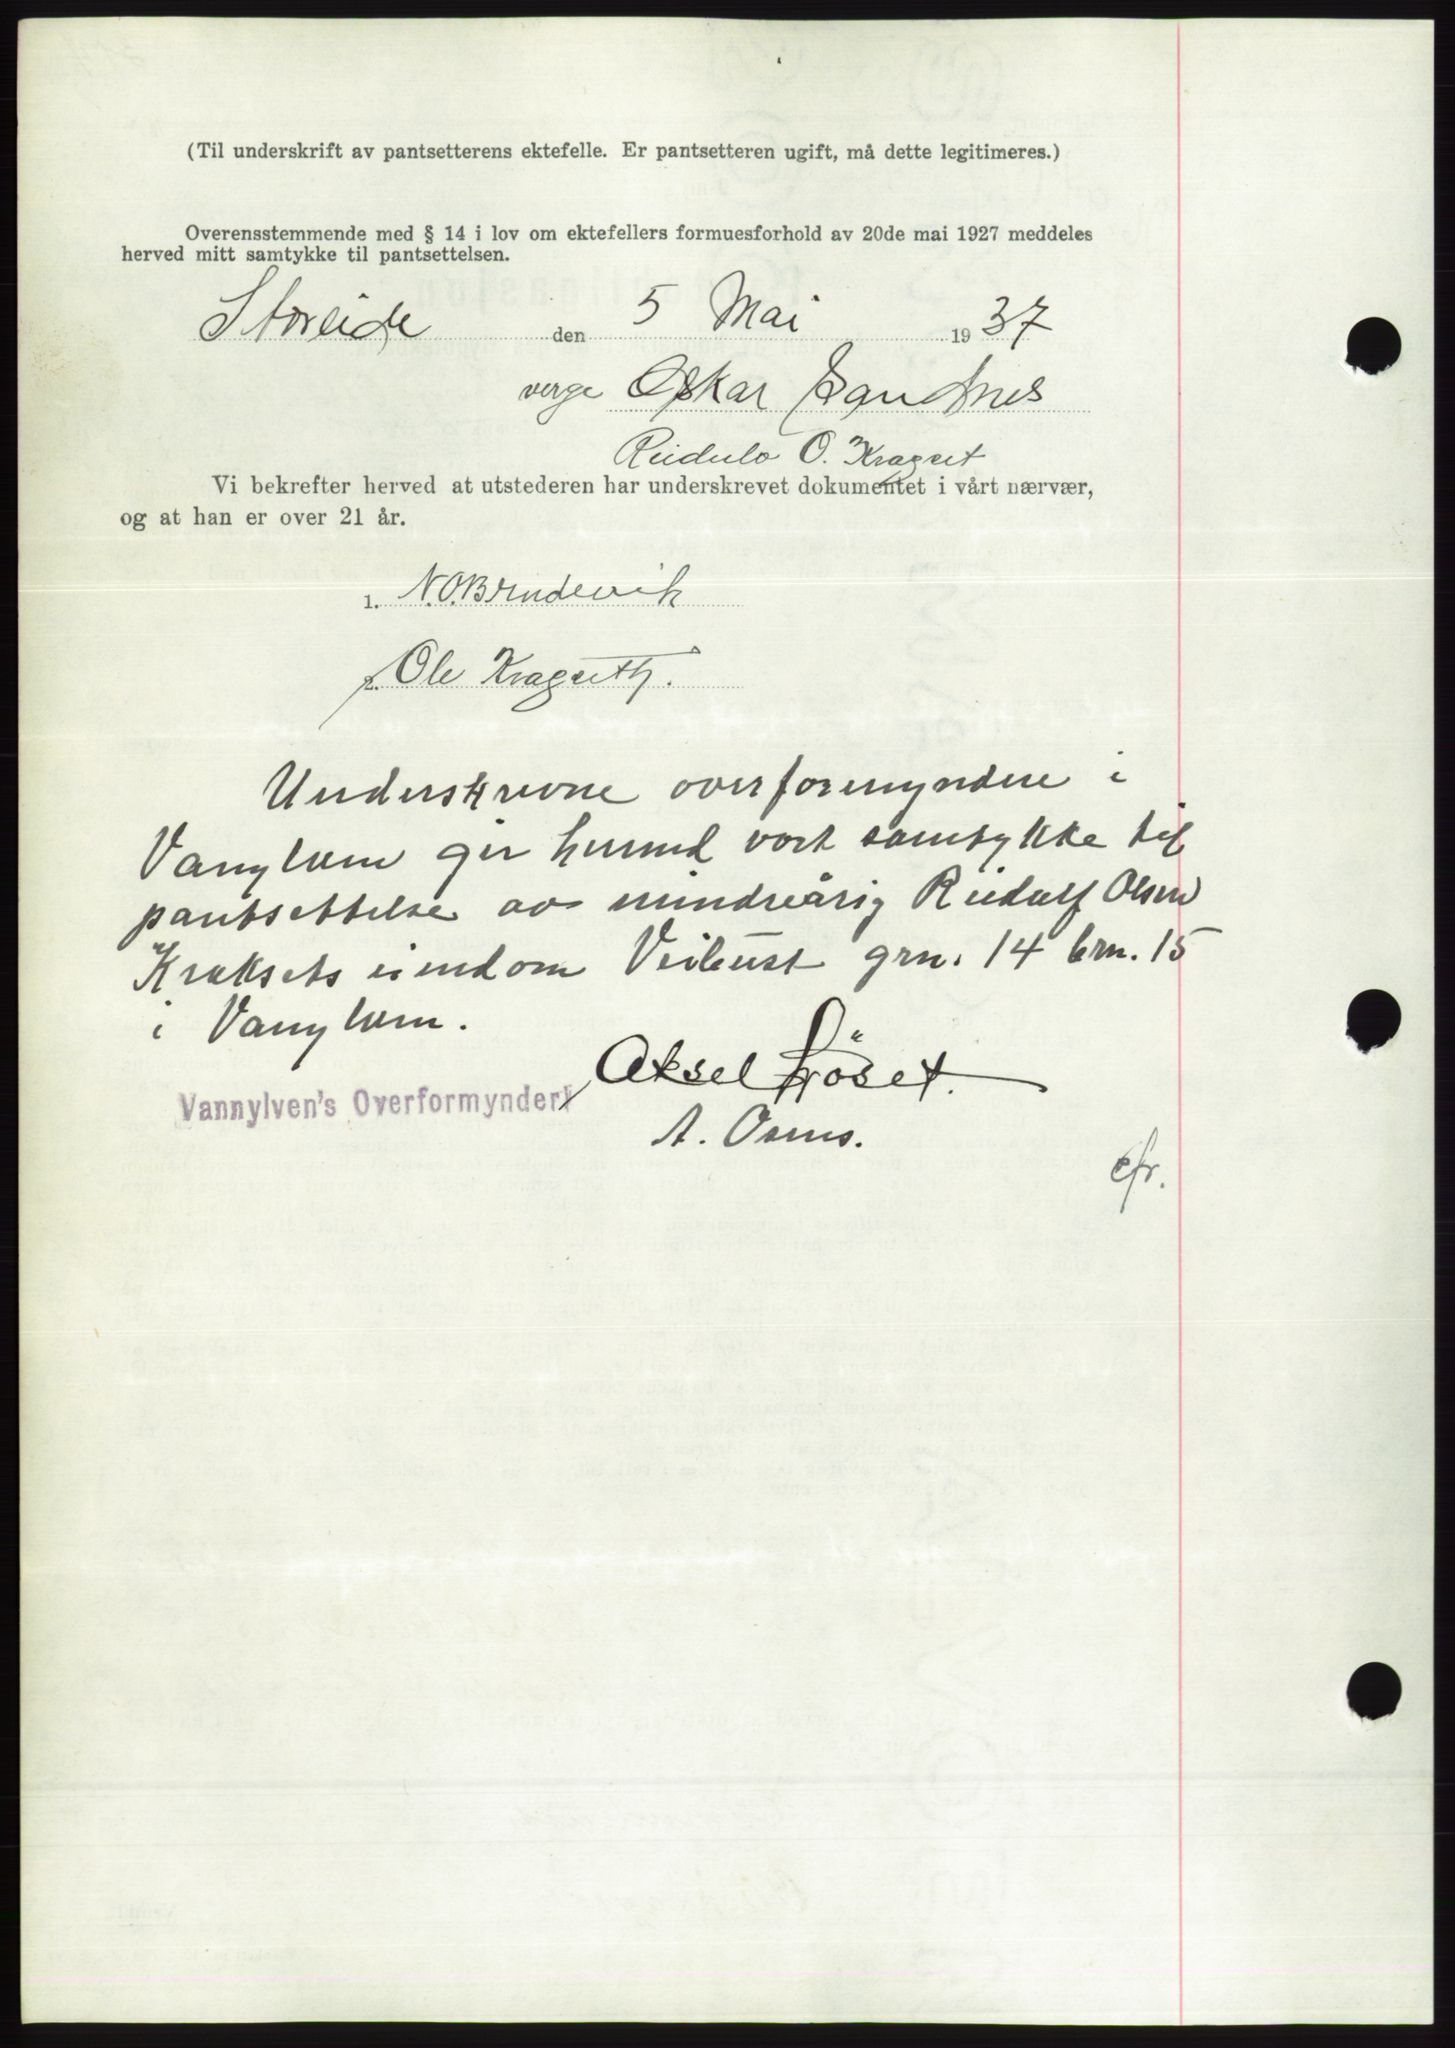 (Til underskrift av pantsetterens ektefelle. Er pantsetteren ugift, må dette legitimeres.)
Overensstemmende med § 14 i lov om ektefellers formuesforhold av 20de mai 1927 meddeles
herved mitt samtykke til pantsettelsen.
Storeide den 5 Mai 1937
verge Oskar Sandnes
O. Kragset
Vi bekrefter herved at utstederen har underskrevet dokumentet i vårt nærvær,
og at han er over 21 år.
1. N.O. Brudevik
2. Ole Kragseth.
Underskrevne overformyndere i
Vanylven gir herved vort samtykke til
pantsettelse av mindreårig Rudulf Olsen
Kraksets eiendom Veibust grn. 14 brn. 15
i Vanylven.
Aksel Löset.
Vannylven's Overformynderi
A. Osnes.
cfr.